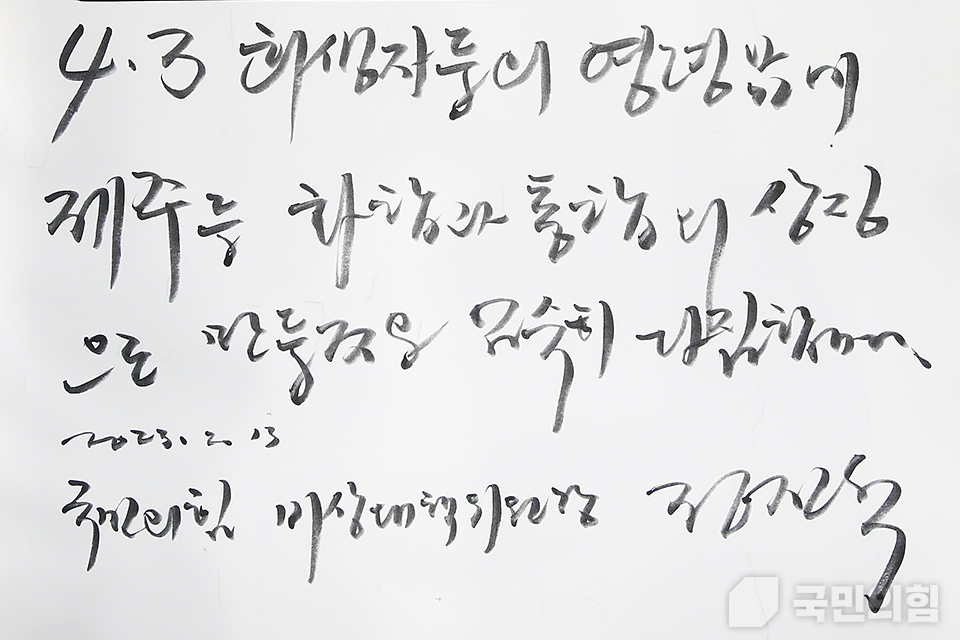 4.3 희생자들의 영령앞에
제주를 화합과 통합의 상징
으로 만들것을 엄숙히 다짐합니다.
2023. 2. 13
국민의힘 비상대책위원장 정진석
국민의힘